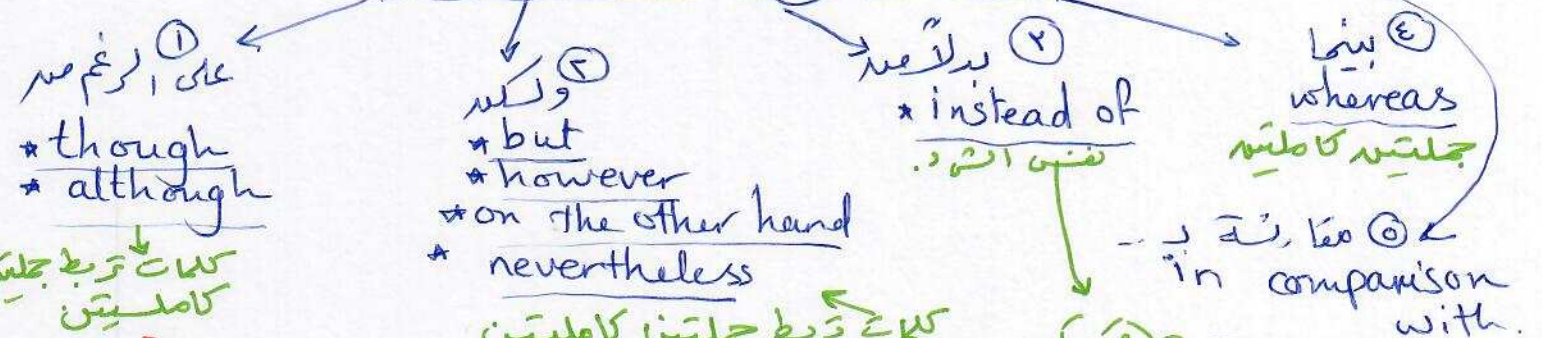 ① على الرغم من
* though
* although
كلمات تربط
كاملتين
② ولكن
* but
* however
* on the other hand
* nevertheless
كلمات تربط جملتين كاملتين
③ بدلاً من
* instead of
نفس الشرط.
④ بينما
whereas
جملتين كاملتين
⑤ مقارنة بـ ..
in comparison
with.